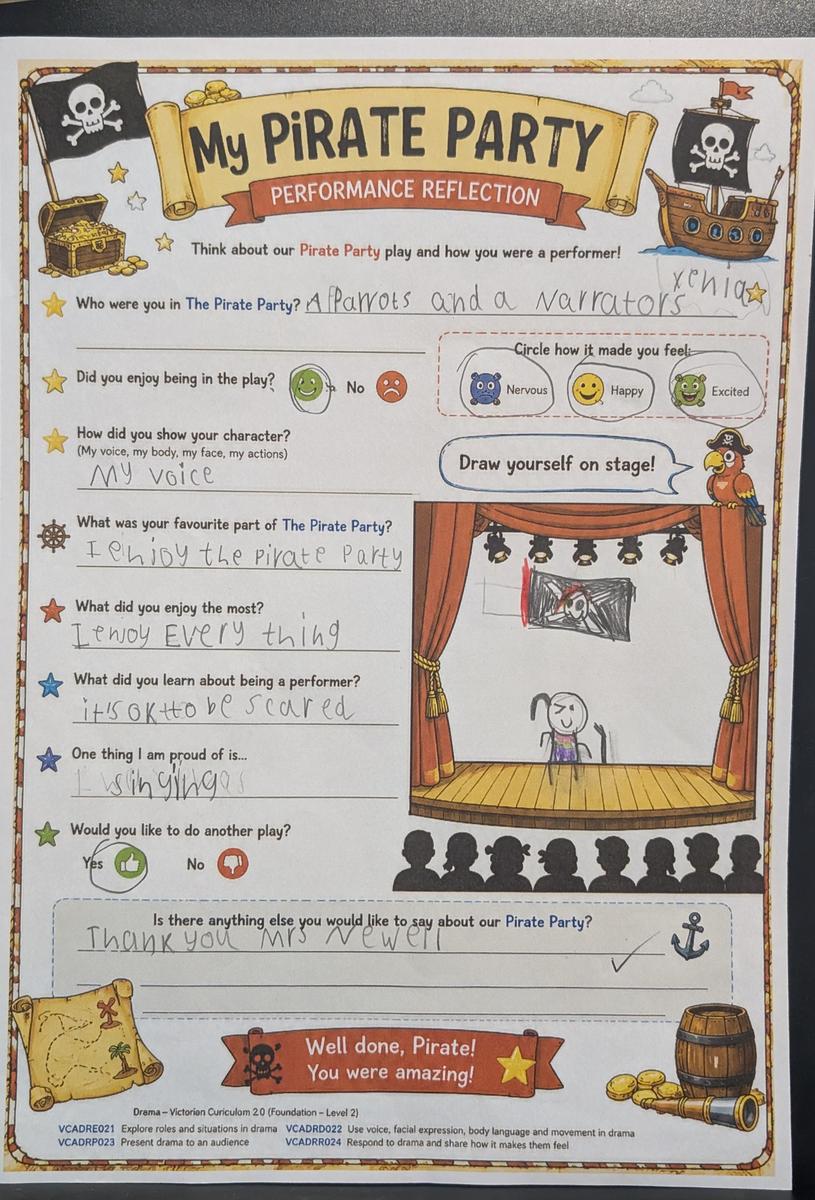 My PiRATE PARTY
PERFORMANCE REFLECTION
Think about our Pirate Party play and how you were a performer!
xenia
Who were you in The Pirate Party? A Parrots and a Narrators
Circle how it made you feel:
Nervous Happy Excited
Did you enjoy being in the play? No
How did you show your character?
(My voice, my body, my face, my actions)
My voice
Draw yourself on stage!
What was your favourite part of The Pirate Party?
I enjoy the pirate Party
What did you enjoy the most?
I enjoy EVERY thing
What did you learn about being a performer?
it's ok to be scared
One thing I am proud of is...
singing
Would you like to do another play?
Yes No
Is there anything else you would like to say about our Pirate Party?
Thank you Mrs Newell
Well done, Pirate!
You were amazing!
Drama – Victorian Curiculum 2.0 (Foundation – Level 2)
VCADRE021 Explore roles and situations in drama VCADRD022 Use voice, facial expression, body language and movement in drama
VCADRP023 Present drama to an audience VCADRR024 Respond to drama and share how it makes them feel